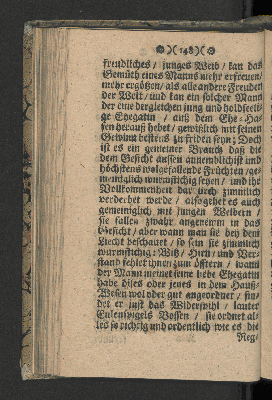 )( 148 )(
freundliches / junges Weib / kan das
Gemüth eines Manns mehr erfreuen/
mehr ergötzen/ als alle andere Freuden
der Welt / und kan ein solcher Mann
der eine dergleichen jung und holdseeli-
ge Ehegatin / auß dem Ehe-Ha-
fen herauß hebet / gewißlich mit seinen
Gewinn bestens zu friden seyn; Doch
ist es ein gemeiner Brauch daß die
dem Gesicht aussen annemblichist und
höchstens wolgefallende Früchten / ge-
meiniglich wurmstichig seynd / und ihr
Vollkommenheit dardurch zimmlich
verderbet werde / also gehet es auch
gemeiniglich mit jungen Weibern /
sie fallen zwahr angenemm in das
Gesicht / aber wann man sie bey dem
Liecht beschauet / so seyn sie zimmlich
wurmstichig: Witz / Hirn / und Ver-
stand fehlet ihnen zum öfftern / wann
der Mann meinet seine liebe Ehegatin
habe dises oder jenes in dem Hauß-
Wesen wol oder gut angeordnet / fin-
det er just das Widerspihl / lauter
Eulenspiegels Possen / sie ordnet al-
les so richtig und ordentlich wie es die
Reg/